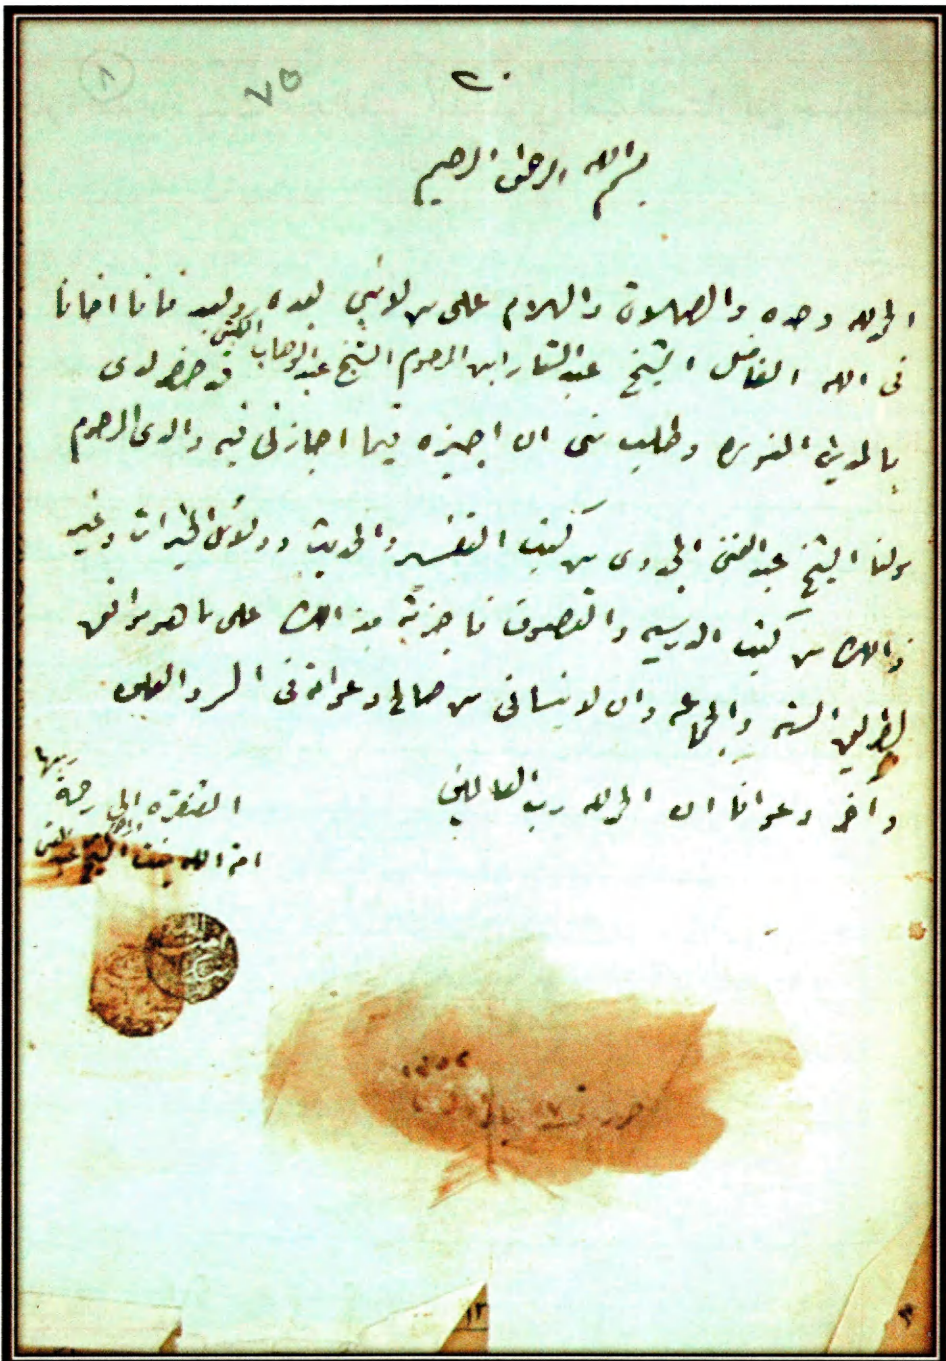 ٨
٧٥
٢٠
بسم الله الرحمن الرحيم
الحمد لله وحده والصلاة والسلام على من لا نبي بعده وبعد فانا اخانا
فى الله الفاضل الشيخ عبد الستار ابن المرحوم الشيخ عبد الوهاب الكتبي قد حضر لدى
بالمدينه المنوره وطلب منى ان اجيزه فيما اجازنى فيه والدى المرحوم
مولنا الشيخ عبد الغنى المجددى من كتب التفسير والحديث ودلائل الخيرات وغير
ذالك من كتب الدرسيه والتصوف فاجزته بذالك على ما هو موافق
لطريق السنه والجماعه وان لا ينسانى من صالح دعواته فى السر والعلن
واخر دعوانا ان الحمد لله رب العالمين
الفقيره الى رحمة ربها
امة الله بنت الشيخ عبد الغنى
حرر فى